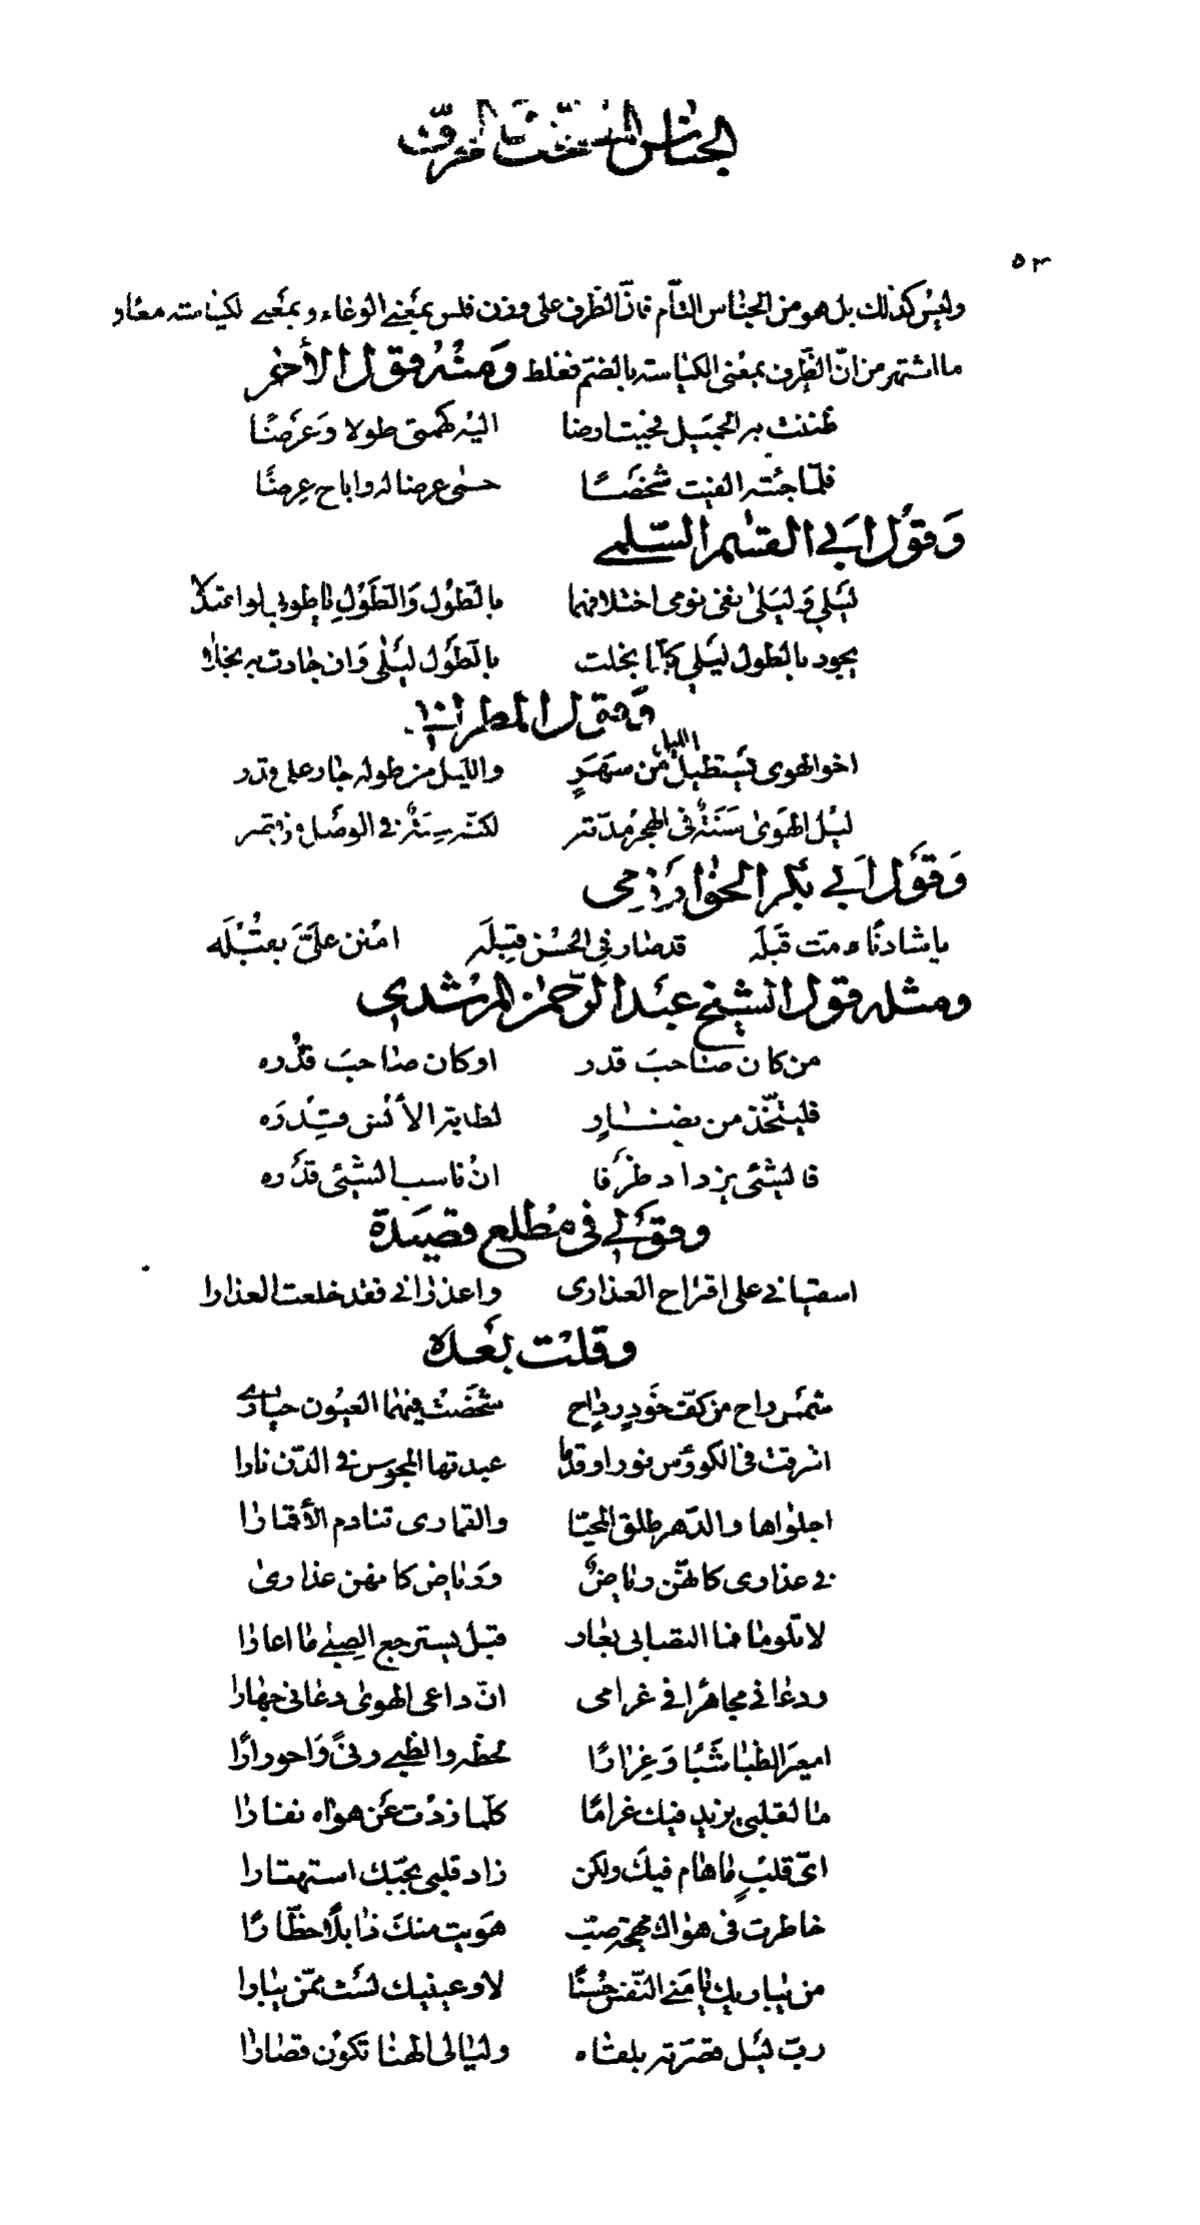 الجناس المصحّف والمحرّف
٥٣
وليس كذلك بل هو من الجناس التامّ فانّ الظرف على وزن فلس بمعنى الوعاء وبمعنى الكياسة معًا و
ما اشتهر من انّ الظّرف بمعنى الكياسة بالضمّ فغلط ومثله قول الأخر
ظننت به الجميل فجبت ارضا اليه كهمتى طولا وَعَرضًا
فلمّا جئته الفيت شخصًا حمى عرضا له واباح عِرضًا
وَقول ابى القسٰم السّلمى
ليلي وَليلىٰ نفى نومى اختلافهما بالطُول وَالطَوْلِ يا طوبى لو اعتدلا
يجود بالطول ليلي كلّما بخلت بالطَول ليلٰى وَان جادت به بخلا
وَقول المطرانى
اخو الهوى يستطيل الليل من سهَرٍ والليل من طوله جار على قدر
ليل الهوىٰ سَنَةٌ فى الهجر مدّته لكنّه سِنَةٌ فى الوصل
وَقول ابى بكر الخوارزمى
يا شادنًا مت قبله قد صار فى الحسن قبلة امنن علىّ بقُبْلَه
ومثله قول الشيخ عبد الرّحمٰن المرشدى
من كان صاحبَ قدر او كان صاحبَ قُدره
فليتّخذ من نضار لطابة الأنس قِدرَه
فالشئى يزداد ظرفا ان ناسب الشئى قَدره
وقولى فى مطلع قصيدة
اسقيانى على اقتراح العذارى واعذرانى فقد خلعت العذارا
وقلت بعده
شمس راح من كفّ خَودٍ رداح شخصت فيهما العيون حيارىٰ
اشرقت فى الكوؤس نورا وقدما عبدتها المجوس فى الدّن نارا
اجلواها والدّهر طلق المحيّا والقمارى تنادم الأقمارا
فى عذارى كانهنّ رياضٌ وَرياض كانهن عذارىٰ
لا تلوما فما التصابى بعار قبل يسترجع الصِبٰى ما اعارا
ودعانى مجاهرًا فى غرامى انّ داعى الهوىٰ دعانى جهارا
امعير الظبا شَبًا وَغرارًا لحظه والظبى رنىً وَاحورارًا
ما لقلبى يزيد فيك غرامًا كلّما زدت عن هواه نفارا
اىّ قلبٍ ما هام فيك ولكن زاد قلبى بحبّك استهتارا
خاطرت فى هواك مهجة صبّ هَويت منك ذابلًا خطّارًا
من يباريك يا مَنى النّفس حُسنًا لا وعينيك لست ممّن يبارا
ربّ ليل قصرته بلقاه وليالى الهنا تكون قصارا